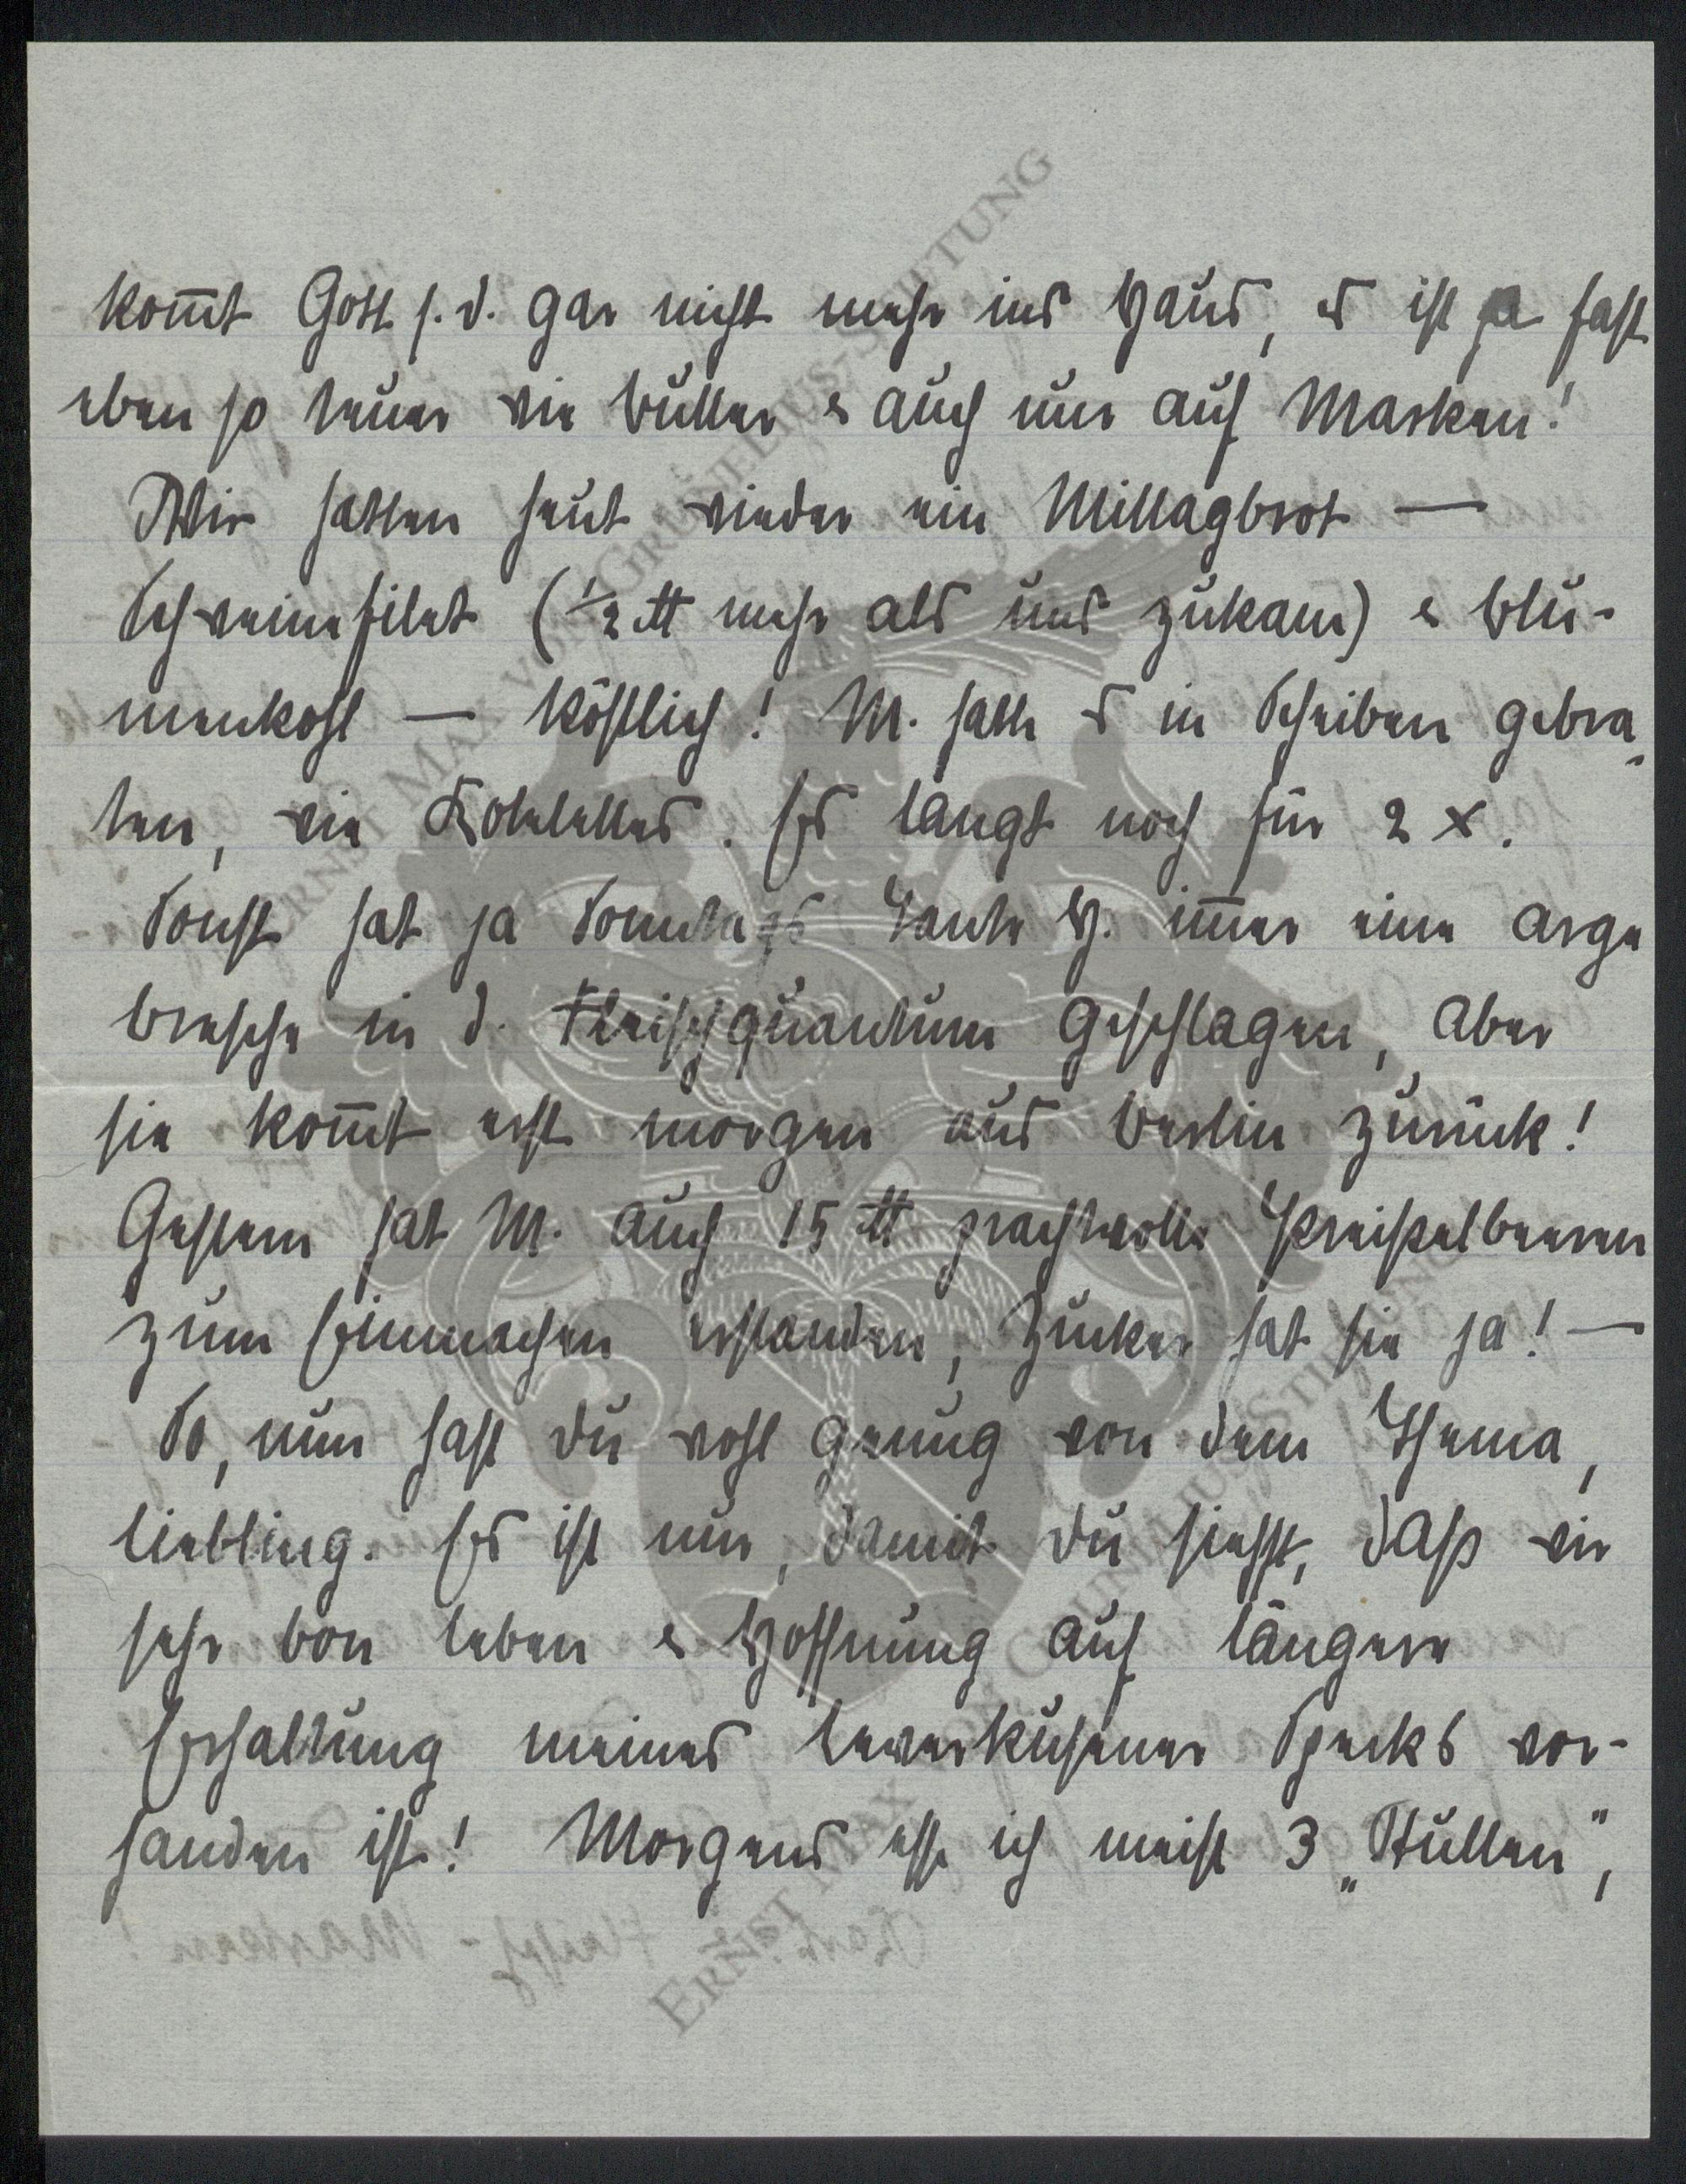 kom̅t Gott s. d. gar nicht mehr ins Haus, es ist ja fast
eben so teuer wie Butter & auch nur auf Marken!
Wir hatten heut wieder ein Mittagbrot —
Schweinefilet (½ ℔ mehr als uns zukam) & Blu-
menkohl — köstlich! M. hatte es in Scheiben gebra-
ten, wie Kotelettes. Es langt noch für 2 x.
Sonst hat ja Sonntags Tante H. im̅er eine arge
Bresche in d. Fleischquantum geschlagen, aber
sie kom̅t erst morgen aus Berlin zurück!
Gestern hat M. auch 15 ℔ prachtvolle Preißelbeeren
zum Einmachen erstanden, Zucker hat sie ja! —
So, nun hast Du wohl genug von dem Thema,
Liebling. Es ist nur, damit Du siehst, daß wir
sehr bon leben & Hoffnung auf längere
Erhaltung meines Leverkusener Specks vor-
handen ist! Morgens esse ich meist 3 „Stullen",
ERNST MAX VON GRUNELIUS-STIFTUNG
ERNST MAX VON GRUNELIUS-STIFTUNG